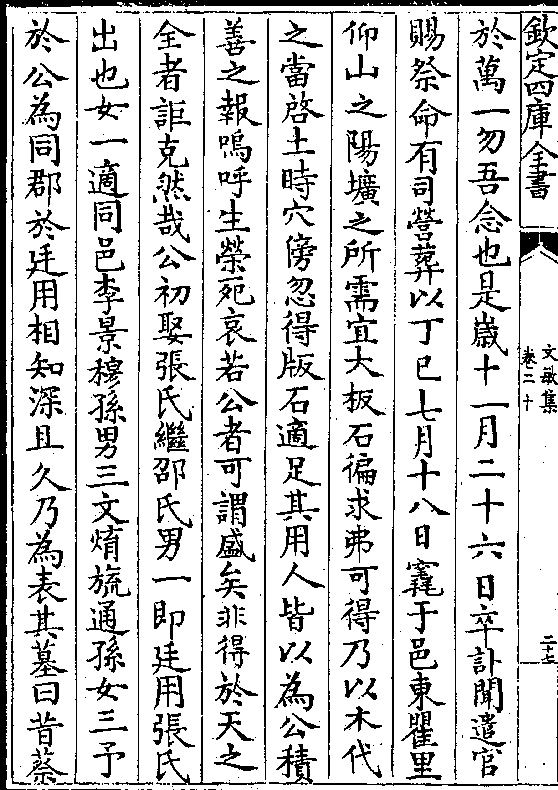 欽定四庫全書
文敏集
卷二十
二十七
於萬一勿吾念也是歳十一月二十六日卒訃聞遣官
賜祭命有司營葬以丁巳七月十八日窆于邑東瞿里
仰山之陽壙之所需宜大板石徧求弗可得乃以木代
之當啓土時穴傍忽得版石適足其用人皆以為公積
善之報嗚呼生榮死哀若公者可謂盛矣非得於天之
全者詎克然哉公初娶張氏繼邵氏男一即廷用張氏
出也女一適同邑李景穆孫男三文焴旒通孫女三予
於公為同郡於廷用相知深且久乃為表其墓曰昔蔡